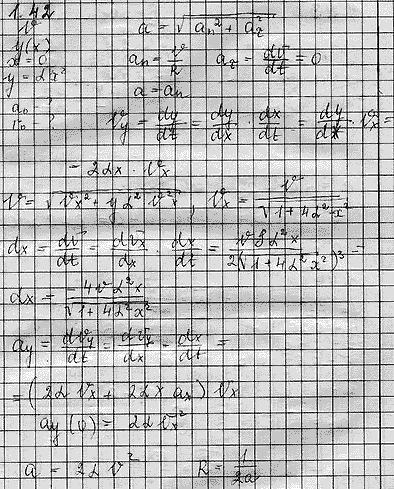 1.42
v
y(x)
x = 0
y = αx²
a₀ - ?
r₀ - ?
a = √(aₙ² + a_τ²)
aₙ = v/R a_τ = dv/dt = 0
a = aₙ
v_y = dy/dt = dy/dx · dx/dt = dy/dx · v_x =
= 2αx · v_x
v = √(v_x² + 4α² v²x²), v_x = v/√(1+4α²x²)
dx = dv/dt = dv_x/dx · dx/dt = v8α²x/2(√(1+4α²x²))³ =
dx = -4vα²x/√(1+4α²x²)
a_y = dv_y/dt = dv_y/dx · dx/dt =
= (2αv_x + 2αx a_x) v_x
a_y(0) = 2αv_x²
a = 2αv² R = 1/2a